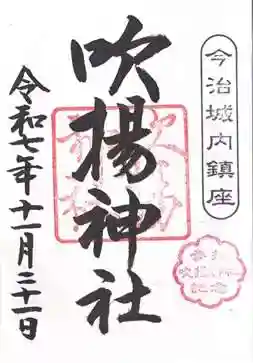 今治城内鎮座
吹揚神社
令和七年十一月二十一日